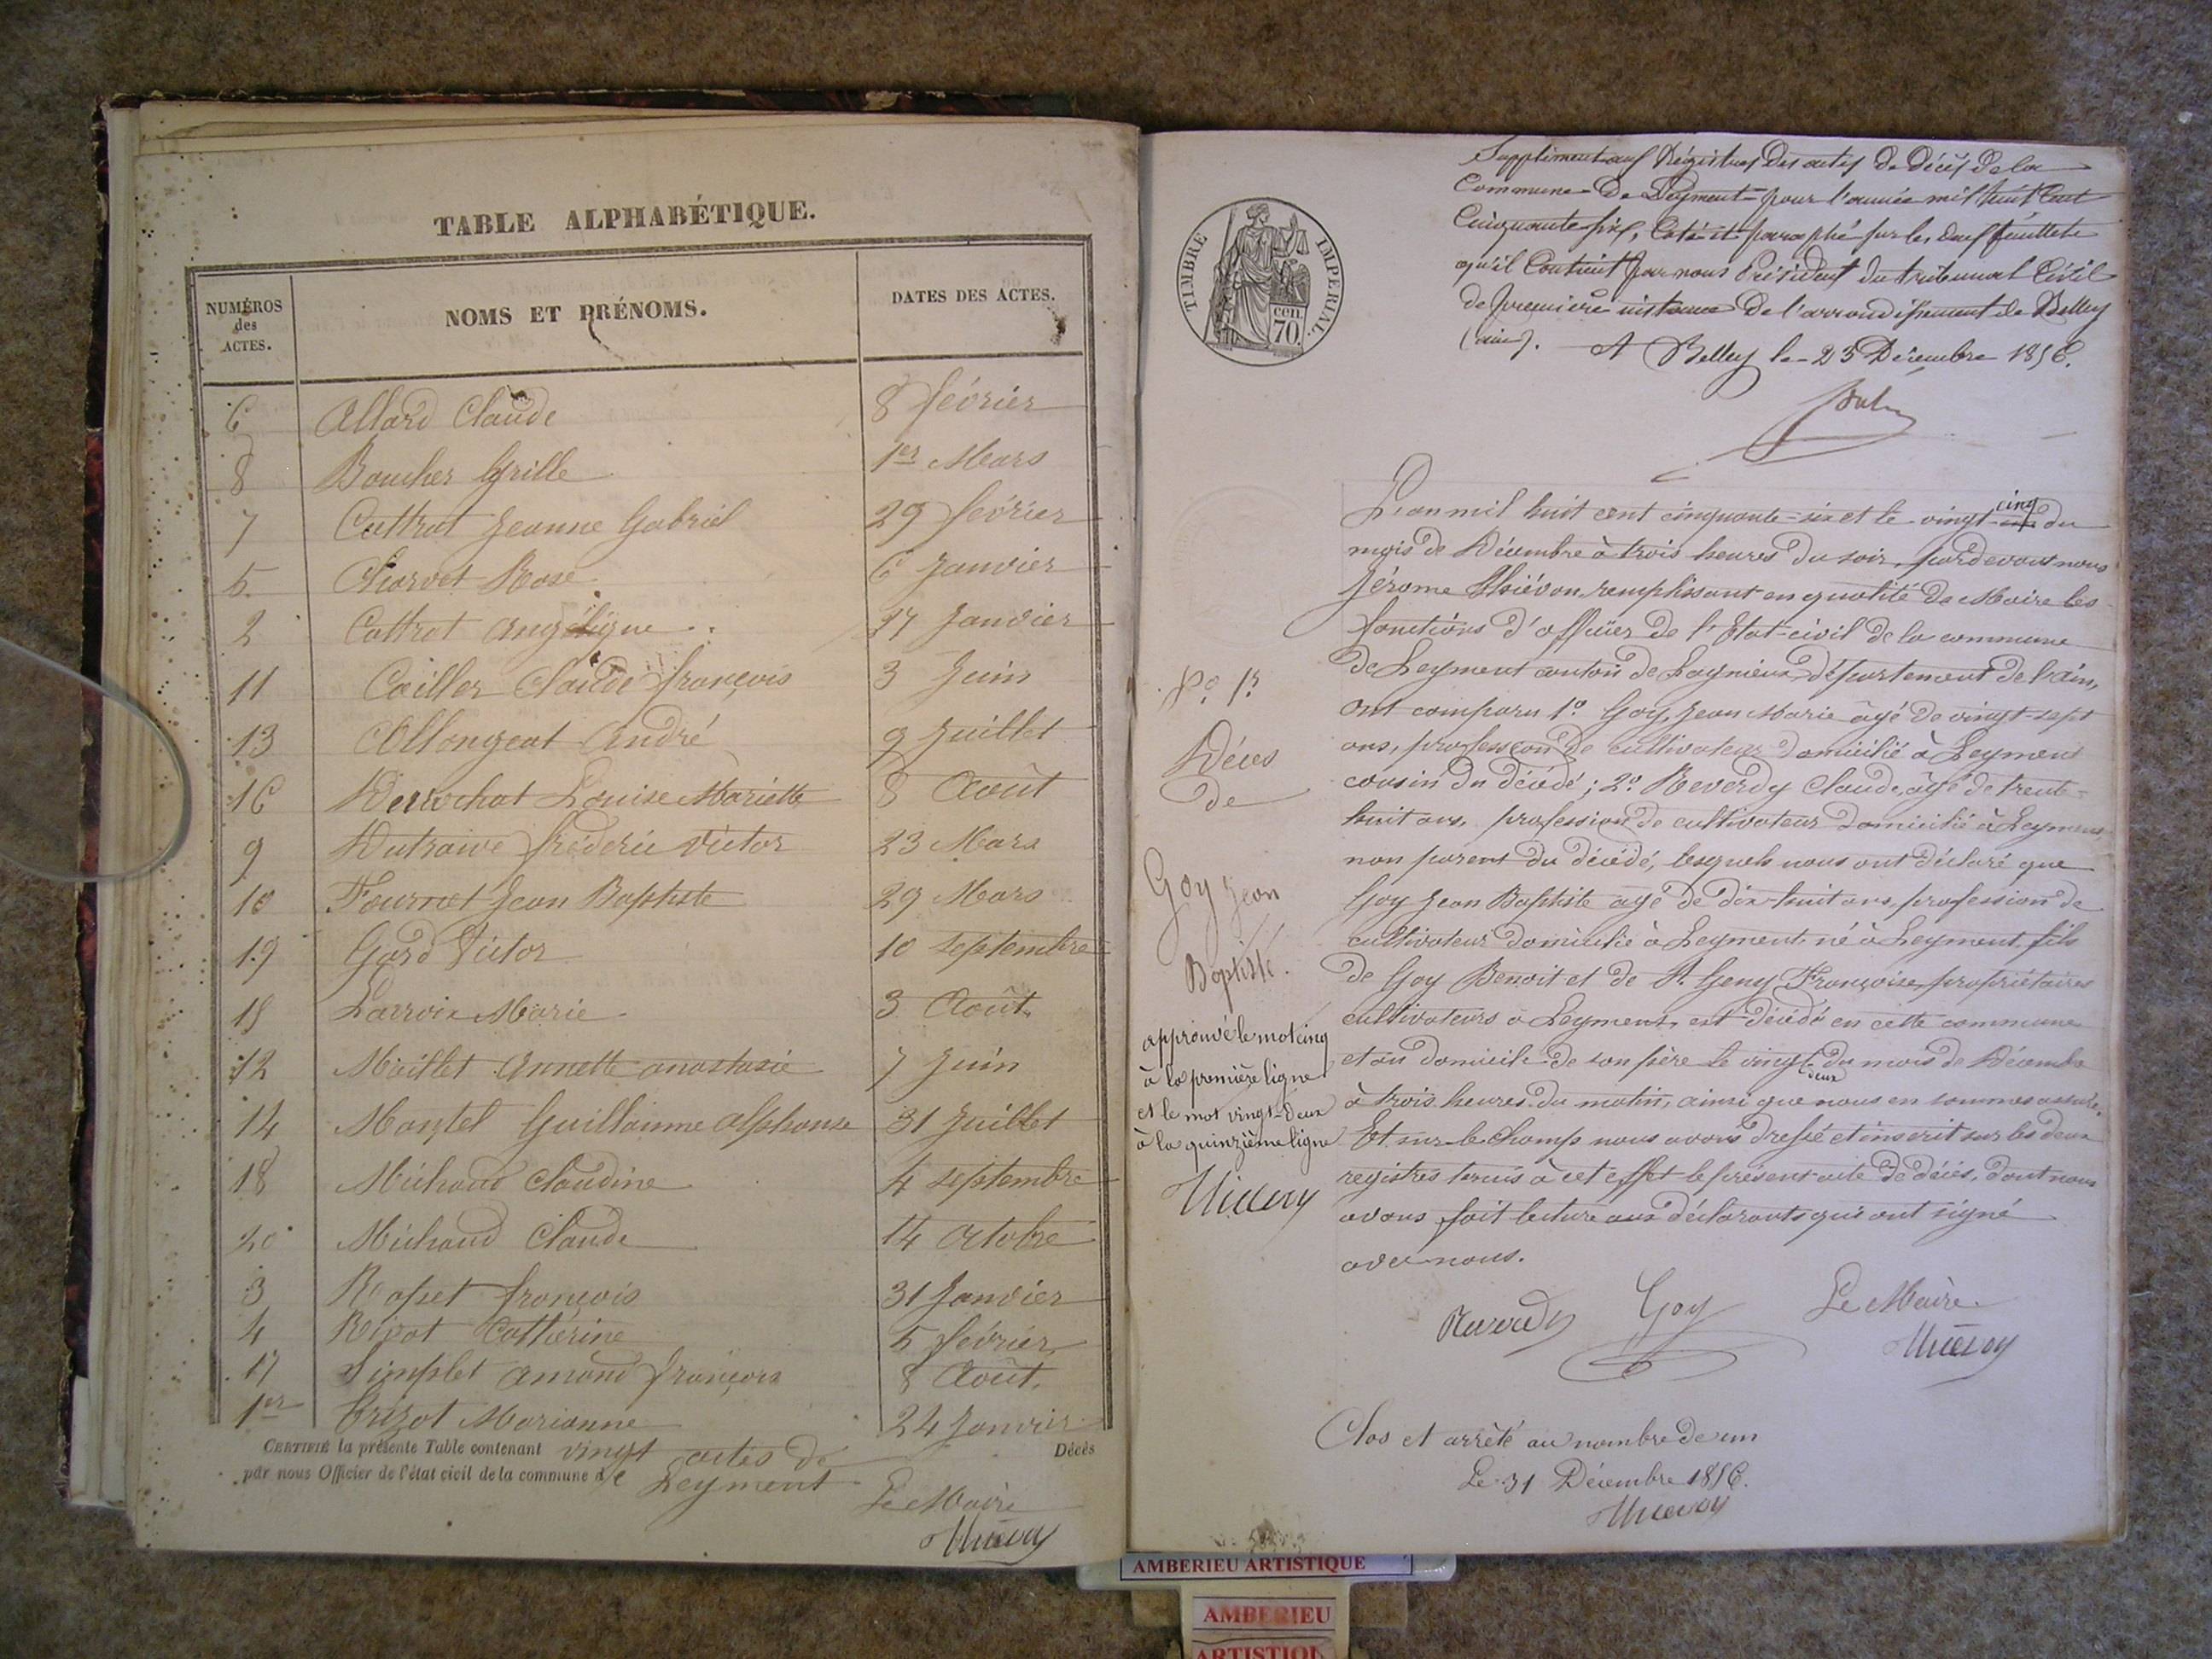 TABLE ALPHABÉTIQUE.
NUMÉROS des ACTES.
NOMS ET PRÉNOMS.
DATES DES ACTES.
6 Allard Claude 8 février
8 Boucher 1er Mars
7 Cottrat Jeanne Gabriel 29 février
5. Charvet Rose 6 Janvier
2 Cottrat Angélique 27 Janvier
11 Cailler Claude françois 3 Juin
13 Allongeat André 9 Juillet
16 Louise Mariette 8 Août
9 Dutraive fréderic Victor 23 Mars
10 Fournet Jean Baptiste 29 Mars
19 Gard Victor 10 septembre
15 Lacroix Marie 3 Août
12 Maillet Annette anastasie 7 Juin
14 Montel Guillaume alphonse 31 Juillet
18 Michaud Claudine 4 septembre
20 Michaud Claude 14 Octobre
3 françois 31 Janvier
4 Catherine 5 février
17 Simplet Amand françois 8 Août
1er Trizot Marianne 24 Janvier
CERTIFIÉ la présente Table contenant vingt actes de Décès
par nous Officier de l'état civil de la commune de Leyment
Le Maire
TIMBRE IMPÉRIAL.
CEN. 70.
Supplément aux Régistres des actes de Décès de la
Commune de Leyment pour l'année mil huit Cent
Cinquante six, Coté et paraphé sur les deux feuillets
qu'il Contient par nous Président du tribunal Civil
de première instance de l'arrondissement de Belley
(ain). A Belley le 23 Décembre 1856.
L'an mil huit cent cinquante-six et le vingt cinq du
mois de Décembre à trois heures du soir, pardevant nous
Jérome Thiévon, remplissant en qualité de Maire les
fonctions d'officier de l'Etat-civil de la commune
de Leyment canton de Lagnieux, département de l'ain,
N° 1er
ont comparu 1° Goy, Jean Marie âgé de vingt-sept
ans, profession de cultivateur domicilié à Leyment
Décès
cousin du décédé; 2° Reverdy Claude, âgé de trente-
de
huit ans, profession de cultivateur domicilié à Leyment,
non parent du décédé, lesquels nous ont déclaré que
Goy Jean
Goy Jean Baptiste âgé de dix-huit ans, profession de
cultivateur domicilié à Leyment, né à Leyment, fils
Baptiste.
de Goy Benoit et de St. Geny Françoise, propriétaires
cultivateurs à Leyment, est décédé en cette commune
approuvé le mot cinq
et au domicile de son père le vingt-deux du mois de Décembre
à la première ligne
et le mot vingt-deux
à trois heures du matin, ainsi que nous en sommes assuré.
à la quinzième ligne
Et sur-le-champ nous avons dressé et inscrit sur les deux
registres tenus à cet effet le présent acte de décès, dont nous
avons fait lecture aux déclarants qui ont signé
avec nous.
Reverdy Goy Le Maire
Clos et arrêté au nombre de un
Le 31 Décembre 1856.
AMBERIEU ARTISTIQUE
AMBERIEU
ARTISTIQU